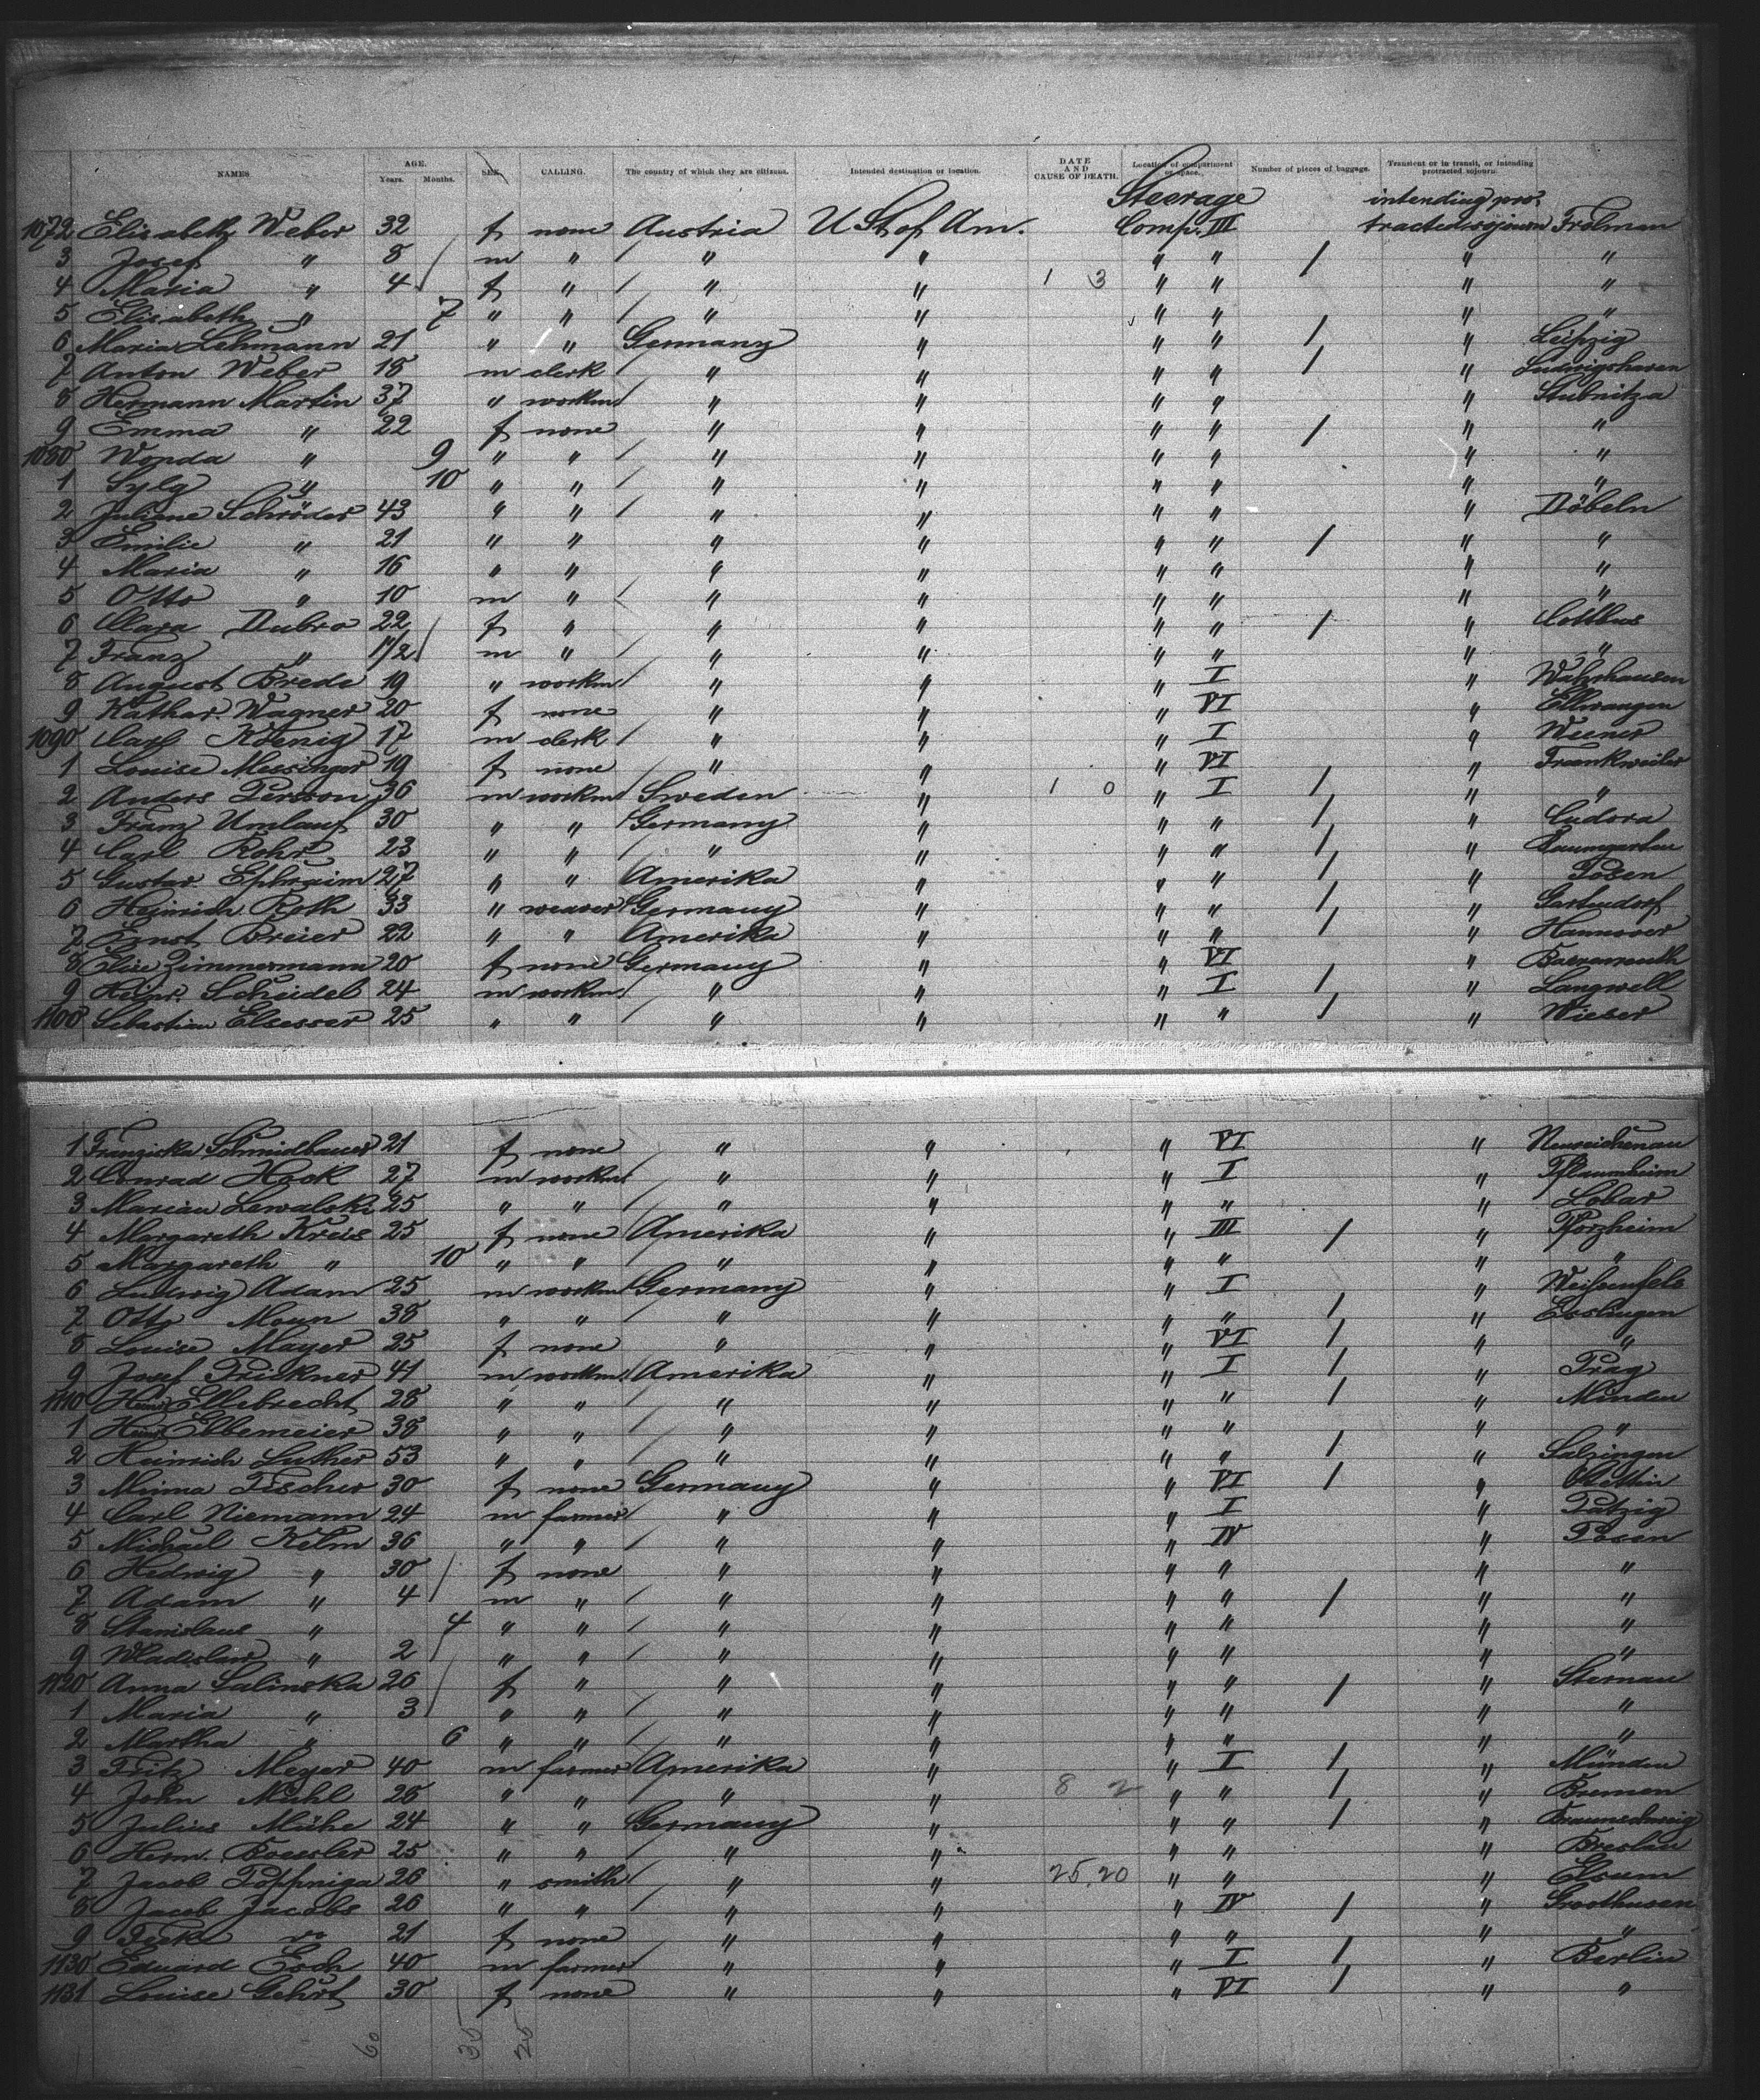 NAMES AGE. Years. Months. SEX. CALLING. The country of which they are citizens. Intended destination or location. DATE AND CAUSE OF DEATH. Location of compartment or space. Number of pieces of baggage. Transient or in transit, or intending protracted sojourn.
Steerage intending pro-
1072 Elisabeth Weber 32 f none Austria U St of Am. Comp. III tracted sojourn
3 Josef " 8 m " " " " " / " "
4 Maria " 4 f " " " 1 3 " " " "
5 Elisabeth " 7 " " " " " " " "
6 Maria Lehmann 21 " " Germany " " " / " Leipzig
7 Anton Weber 18 m clerk " " " " / " Ludwigshaven
8 Hermann Martin 37 " workm " " " " " Stubnitza
9 Emma " 22 f none " " " " / " "
1080 Wanda " 9 " " " " " " " "
1 " 10 " " " " " " " "
2 Juliane Schröder 43 " " " " " " " Döbeln
3 Emilie " 21 " " " " " " / " "
4 Maria " 16 " " " " " " " "
5 Otto " 10 m " " " " " " "
6 Clara Dubro 22 f " " " " " / " Cottbus
7 Franz " 1 1/2 m " " " " " " "
8 August Brede 19 " workm " " " I "
9 Kathar. Wagner 20 f none " " " VI " Ellwangen
1090 Carl Koenig 17 m clerk " " " I " Weener
1 Louise Messinger 19 f none " " " VI " Frankweiler
2 Anders Persson 36 m workm Sweden " 1 0 " I / " "
3 Franz Umlauf 30 " " Germany " " " / " Cudova
4 Carl Rohr 23 " " " " " " / " Baumgarten
5 Gustav Ephraim 27 " " Amerika " " " / " Posen
6 Heinrich Roth 33 " weaver Germany " " " / "
7 Ernst Breier 22 " " Amerika " " " / " Hannover
8 Elise Zimmermann 20 f none Germany " " VI "
9 Heinr. Scheidel 24 m workm " " " I / " Langwell
1100 Sebastian Elsesser 25 " " " " " " / " Wieser
1 Franziska Schmidbauer 21 f none " " " VI " Neureichenau
2 Conrad Hock 27 m workm " " " I " Pflaumheim
3 Marian Lewalski 25 " " " " " " " Lobar
4 Margareth Kreis 25 f none Amerika " " III / " Pforzheim
5 Margareth " 10 " " " " " " " "
6 Ludwig Adam 25 m workm Germany " " I " Weissenfels
7 Otto Moun 38 " " " " " " / " Esslingen
8 Louise Mayer 25 f none " " " VI / " "
9 Josef Prickner 41 m workm Amerika " " I / " Prag
1110 Heinr. Ellebrecht 28 " " " " " " / " Minden
1 Heinr. Ebbemeier 38 " " " " " " " "
2 Heinrich Luther 53 " " " " " " / " Salzingen
3 Minna Fischer 30 f none Germany " " VI / " Stettin
4 Carl Niemann 24 m farmer " " " I " Patzig
5 Michael Kelm 36 " " " " " IV " Posen
6 Hedwig " 30 f none " " " " " "
7 Adam " 4 m " " " " " / " "
8 Stanislaus " 4 " " " " " " " "
9 Wladislaw " 2 " " " " " " " "
1120 Anna Salinska 26 f " " " " " / " Sternau
1 Maria " 3 " " " " " " " "
2 Martha " 6 " " " " " " " "
3 Fritz Meyer 40 m farmer Amerika " " I / " Münden
4 John Muhl 26 " " " " 8 2 " " / " Bremen
5 Julius Mühe 24 " " Germany " " " / " Braunschweig
6 Herm. Boessler 25 " " " " " " " Breslau
7 Jacob Poppinga 26 " smith " " 25 20 " " " Elsum
8 Jacob Jacobs 26 " " " " " IV / " Groothusen
9 21 f none " " " " " "
1130 Eduard Esch 40 m farmer " " " I / " Berlin
1131 Louise Gehrt 30 f none " " " VI / " "
60 35 25